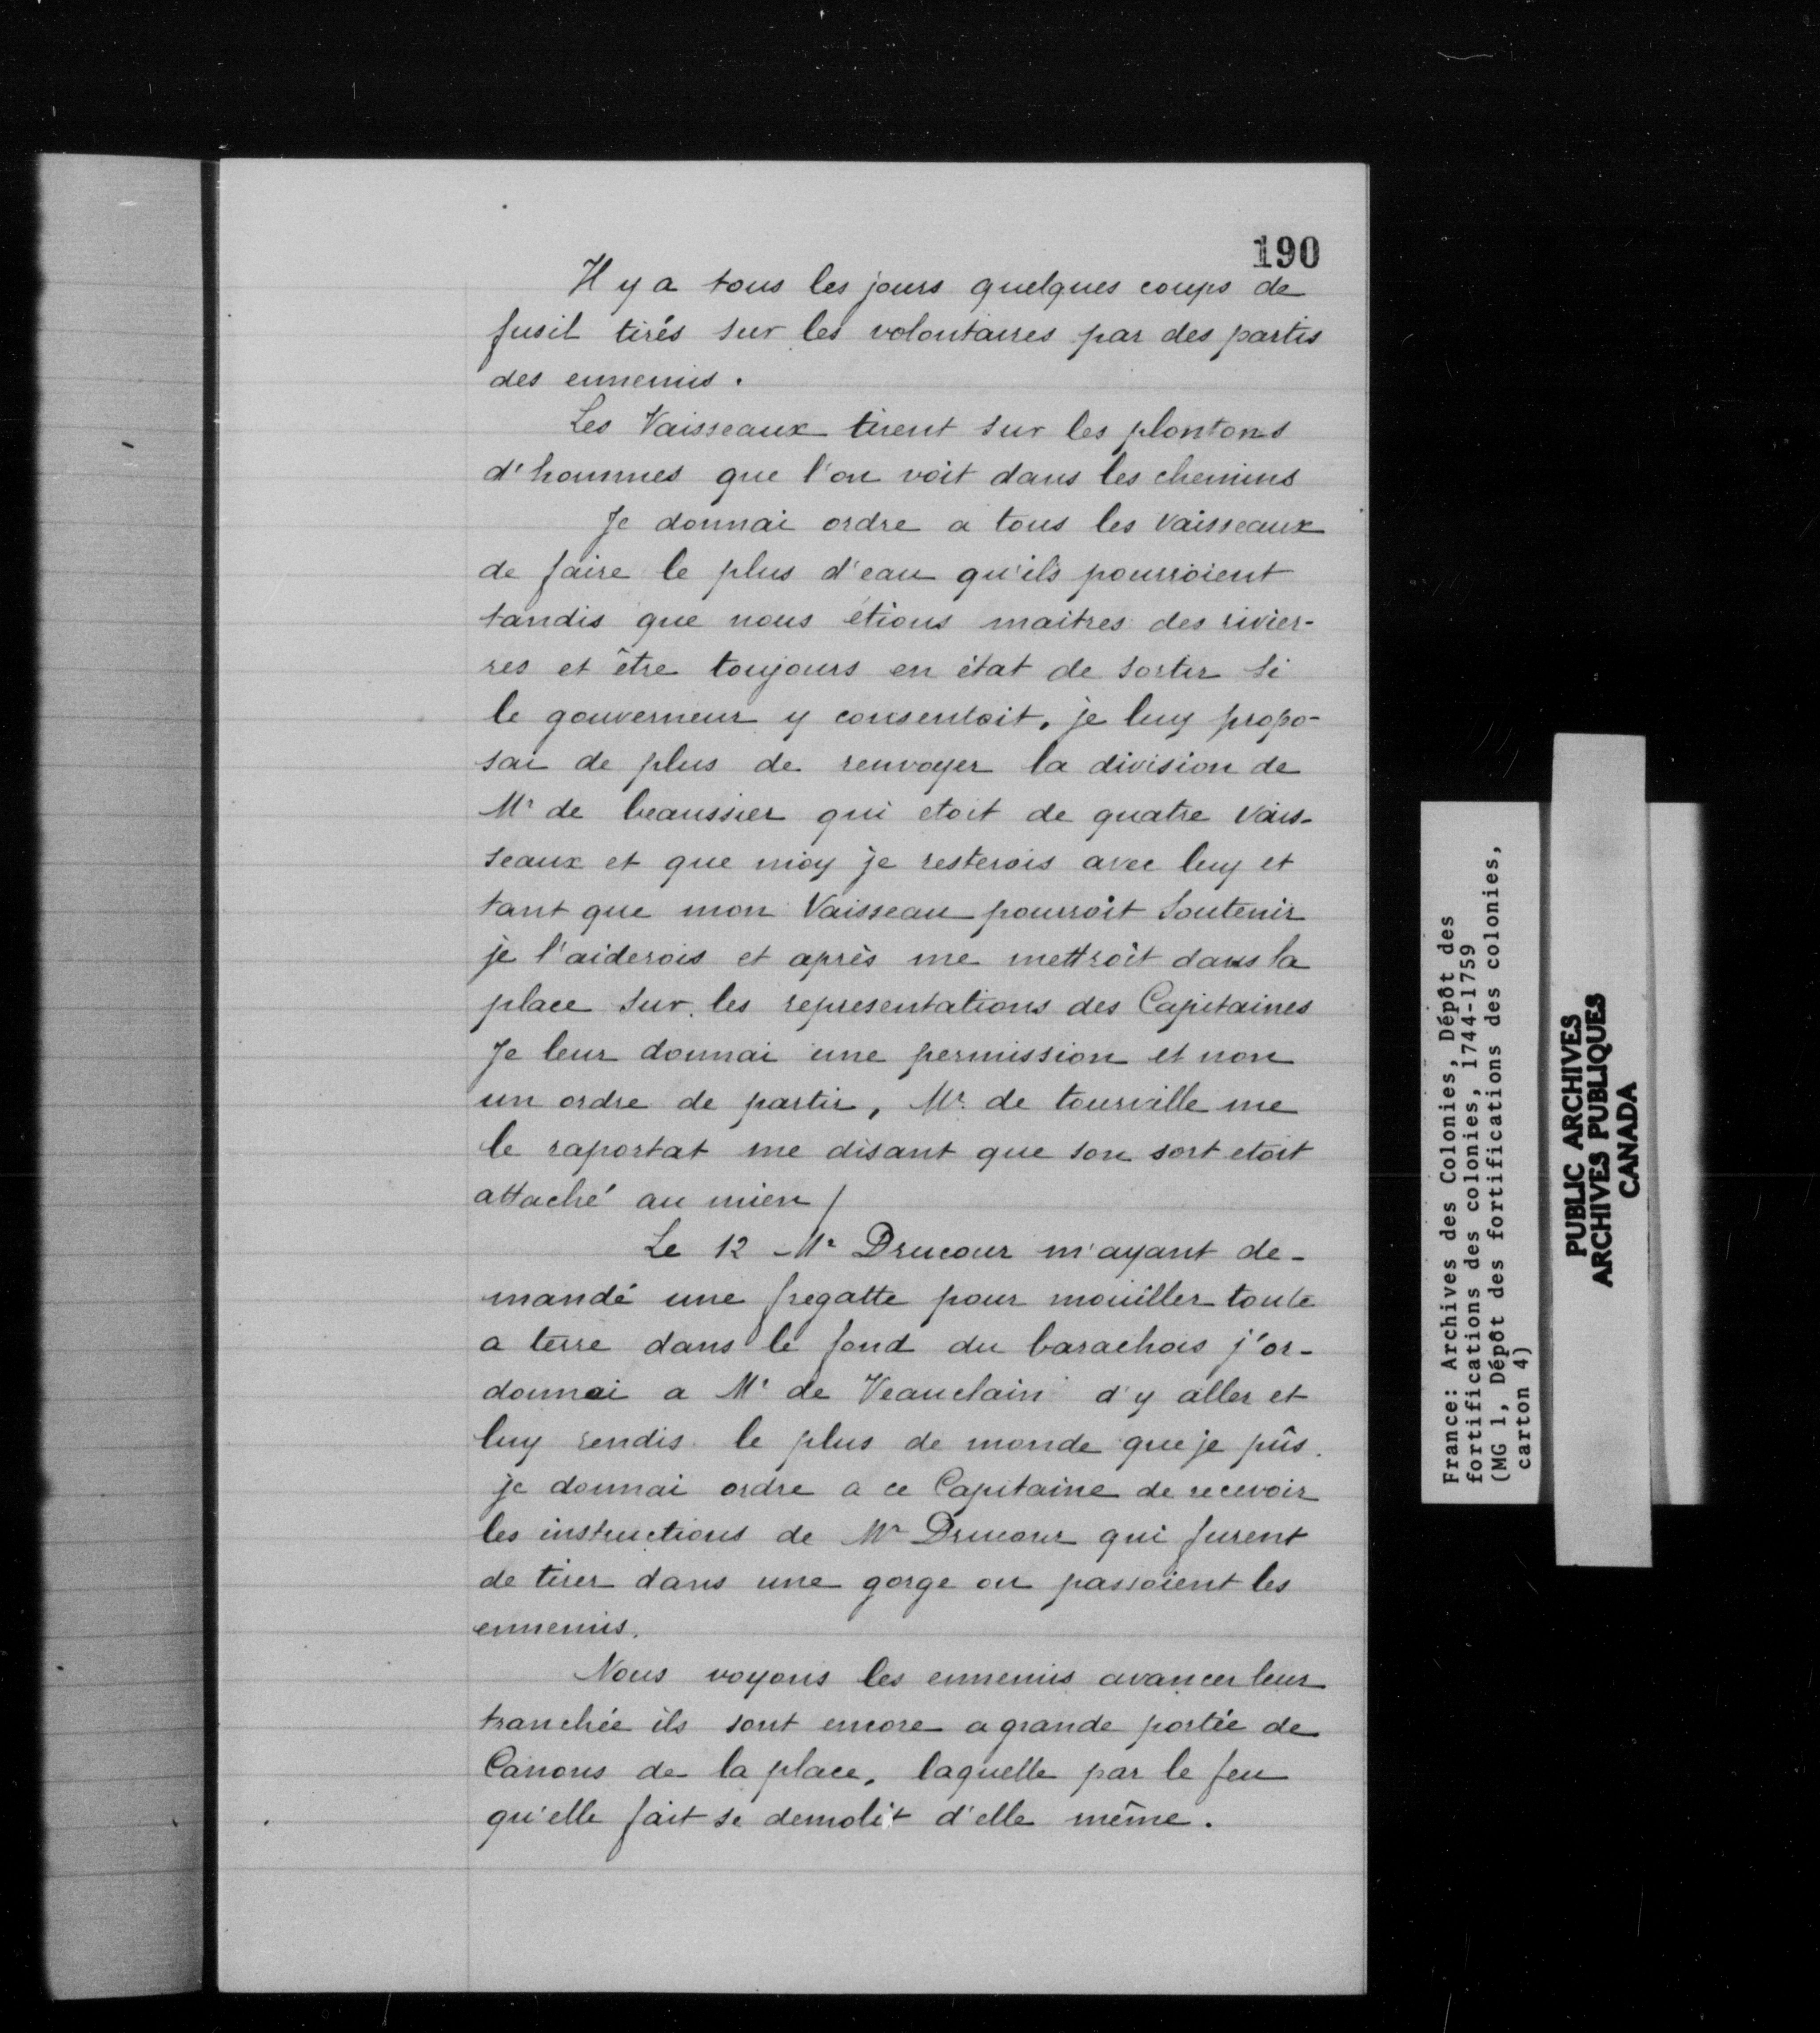 190
Il y a tous les jours quelques coups de
fusil tirés sur les volontaires par des partis
des ennemis.
Les Vaisseaux tirent sur les plontons
d'hommes que l'on voit dans les chemins
Je donnai ordre a tous les Vaisseaux
de faire le plus d'eau qu'ils pourroient
tandis que nous étions maitres des rivier-
res et être toujours en état de sortir si
le gouverneur y consentoit, je luy propo-
sai de plus de renvoyer la division de
Mr de beaussier qui etoit de quatre Vais-
seaux et que moy je resterois avec luy et
tant que mon Vaisseau pourroit soutenir
je l'aiderois et après me mettroit dans la
place sur les representations des Capitaines
Je leur donnai une permission et non
un ordre de partir, Mr. de tourville me
le raportat me disant que son sort etoit
attaché au mien /
Le 12 Mr Drucour m'ayant de-
mandé une fregatte pour mouiller toute
a terre dans le fond du barachois j'or-
donnai a Mr de Veauclain d'y aller et
luy rendis le plus de monde que je pûs.
je donnai ordre a ce Capitaine de recevoir
les instructions de Mr Drucour qui furent
de tirer dans une gorge ou passoient les
ennemis.
Nous voyons les ennemis avancer leur
tranchée ils sont encore a grande portée de
Canons de la place, laquelle par le feu
qu'elle fait se demolit d'elle même.
France: Archives des Colonies, Dépôt des
fortifications des colonies, 1744-1759
(MG 1, Dépôt des fortifications des colonies,
carton 4)
PUBLIC ARCHIVES
ARCHIVES PUBLIQUES
CANADA